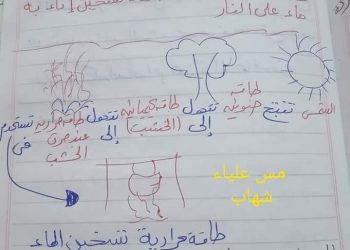 ماء على النار
تسخين إناء به
الشمس تنتج طاقة ضوئية تتحول إلى طاقة كيميائية (الخشب) تتحول إلى طاقة حرارية عند حرق الخشب تستخدم في
مس علياء شهاب
طاقة حرارية تسخين الماء